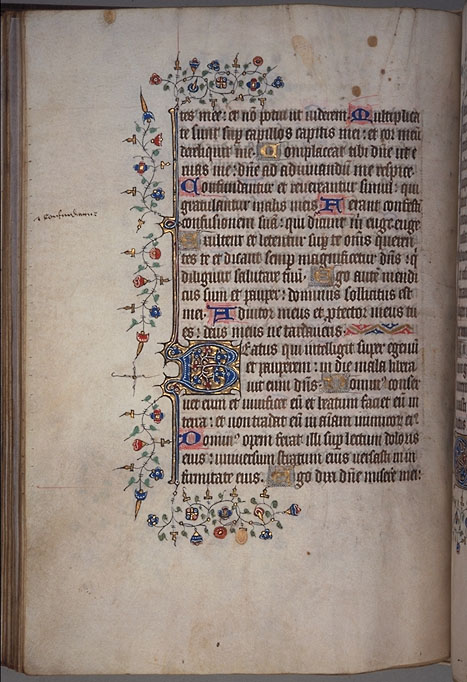 tes mee: et nō potui ut viderem. Multiplica
te sunt sup capillos capitis mei: et cor meū
dereliquit me. Complaceat tibi dñe ut e
ruas me: dñe ad adiuvandū me respice.
Confundantur et revereantur simul: qui
gratulantur malis meis. Ferant confestī
confusionem suā: qui dicunt m euge euge
Exultent et letentur sup te oms queren
tes te et dicant semp magnificetur dñs: q
diligunt salutare tuū. Ego autē mendi
cus sum et pauper: dominus sollicitus est
mei. Adiutor meus et ptector meus tu
es: deus meus ne tardaveris.
Beatus qui intelligit super egenū
et pauperem: in die mala libera
bit eum dñs. Dominus conser
vet eum et vivificet eū et beatum faciat eū in
terra: et non tradat eū in
Dominus opem ferat illi sup lectum doloris
eius: universum stratum eius versasti in in
firmitate eius. Ego dixi dñe miserere mei: